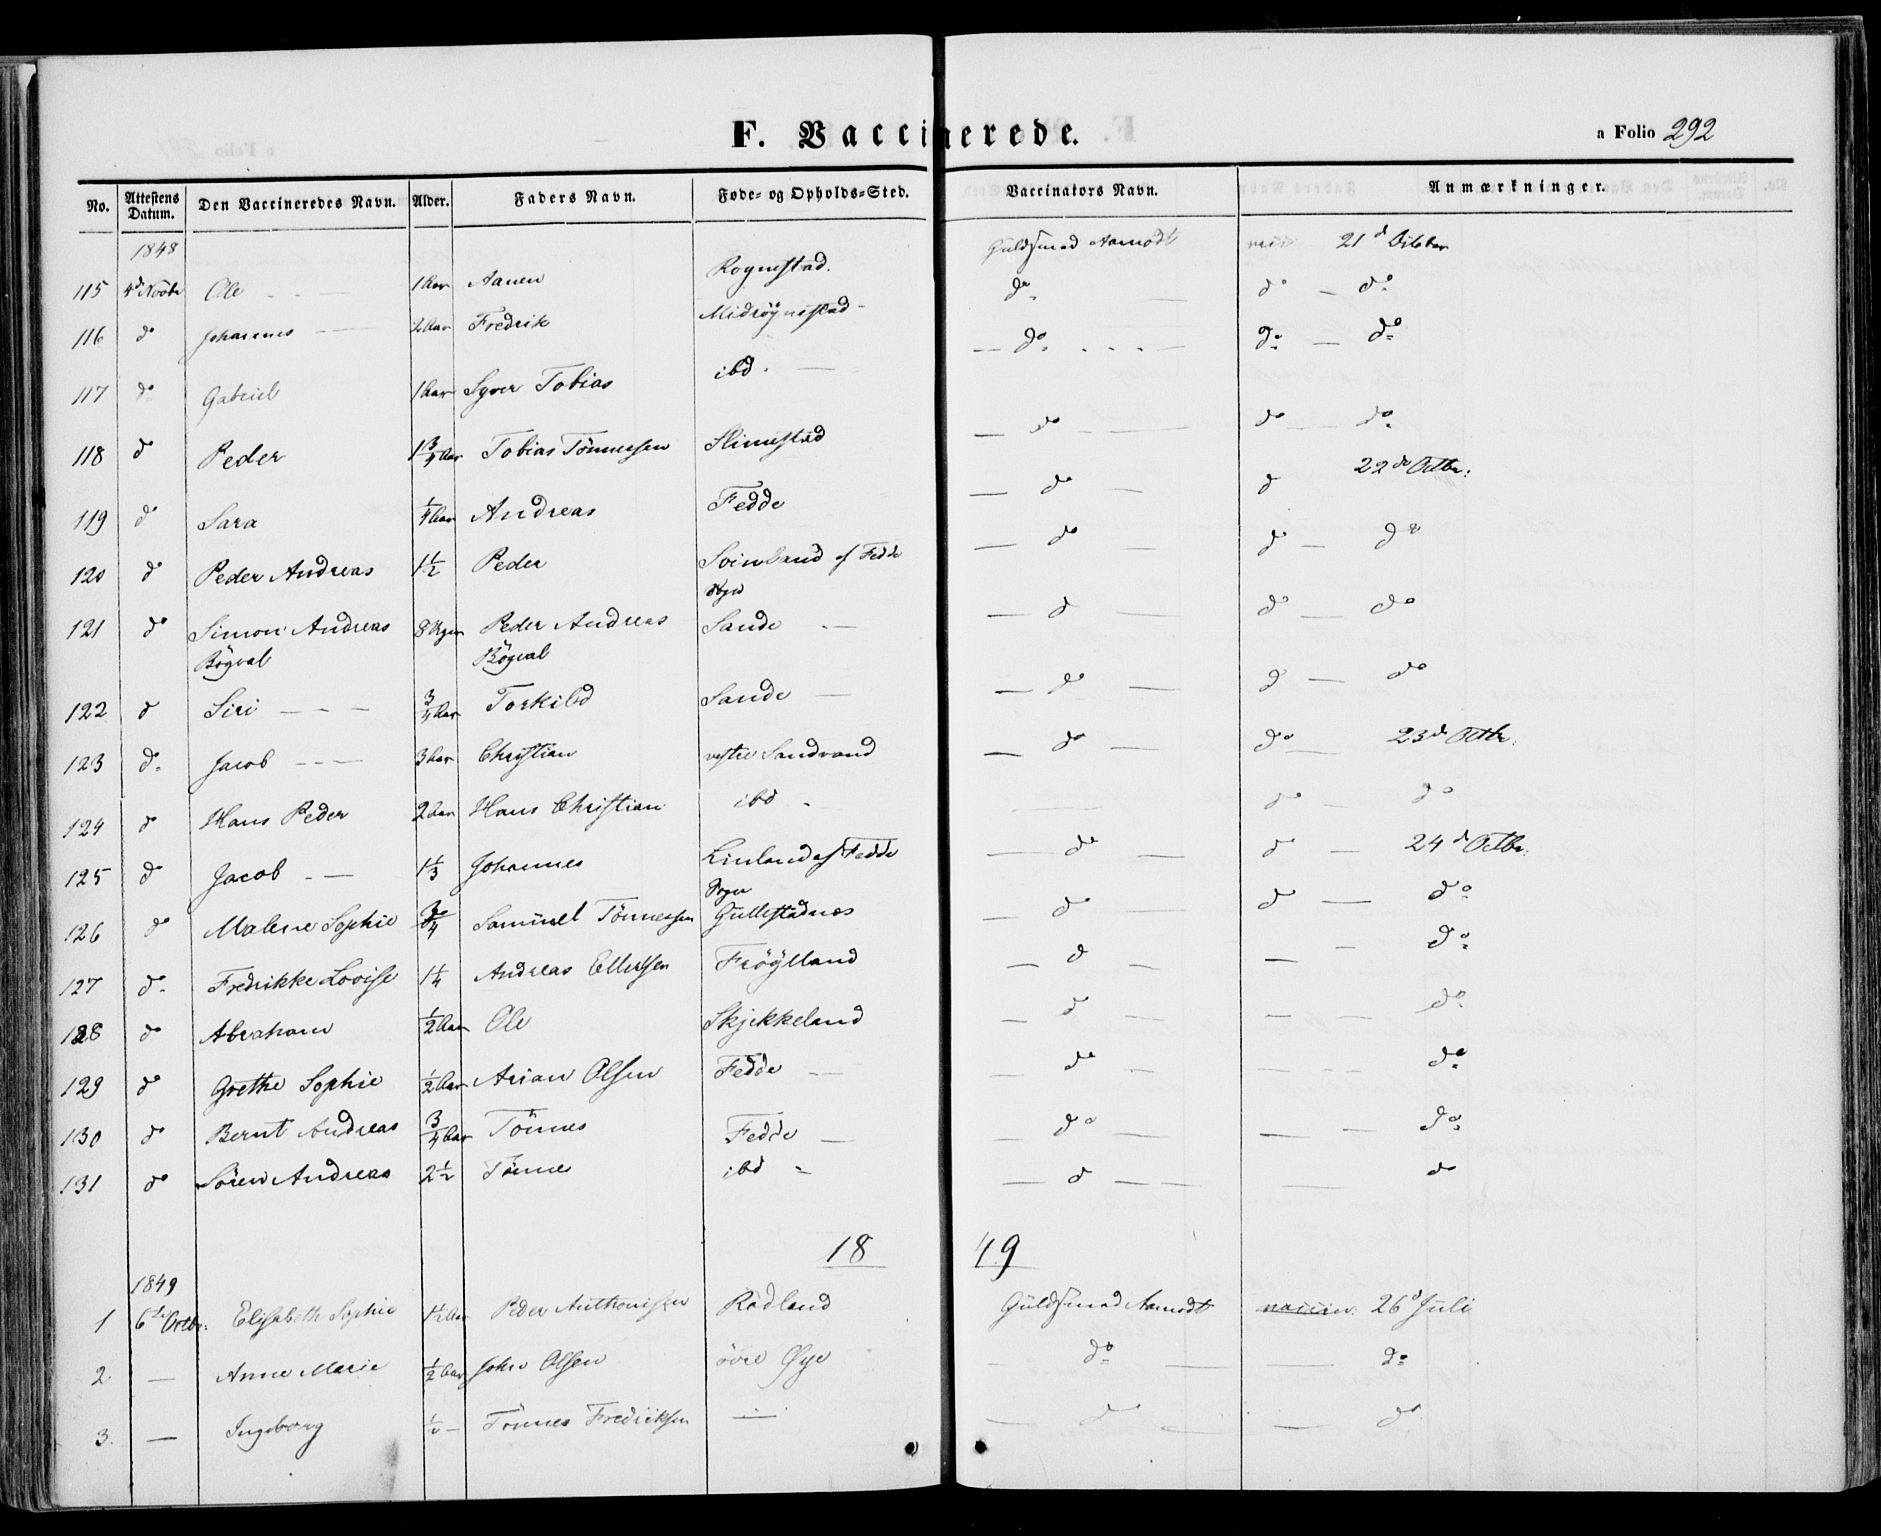 F. Vaccinerede.
a Folio 292
No. Attestens Datum. Den Vaccineredes Navn. Alder. Faders Navn. Føde- og Opholds-Sted. Vaccinators Navn. Anmærkninger.
1848 Guldsmed Aamodt 21d
115 4d Novbr Ole 1 Aar Aanen Rognestad. do do - do
116 do Johannes 2 Aar Fredrik Midrögnestad do do - do
117 do Gabriel 1 Aar Syver Tobias ibd. do do do
118 do Peder 1 3/4 Aar Tobias Tönnessen Slimestad do do 22de Octbr:
119 do Sara 1/4 Aar Andreas Fedde do do - do
120 do Peder Andreas 1 1/2 Peder Svinland af Fedde
Sogn do do - do
121 do Simon Andreas 8 Peder Andreas Sande
Bögval Bögval do do - do
122 do Siri 3/4 Aar Torkild Sande do do 23d Octbr.
123 do Jacob 3 Aar Christian vestre Sandvand do do
124 do Hans Peder 2 Aar Hans Christian ibd do do 24d Octbr.
125 do Jacob 1 1/3 Johannes Linland af Fedde
Sogn do do - do
126 do Malene Sophie 3/4 Samuel Tönnessen Gullestadnes do - do
127 do Fredrikke Lovise 1 1/4 Andreas Ellertsen Fröylland do - do
128 do Abraham 1/2 Aar Ole Skjekkeland do do
129 do Grethe Sophie 1/2 Aar Arian Olsen Fedde do do
130 do Bernt Andreas 3/4 Aar Tönnes Fedde do do
131 do Sören Andreas 2 1/2 Tönnes ibd
1849
1849
1 6te Octbr. Elisabeth Sophie 1 1/2 Aar Peder Anthonisen Rödland Guldsmed Aamodt vaccin: 26d Juli
2 — Anne Marie 1/2 Aar John Olsen övre Øye do do
3. — Ingeborg 1/2 — Tönnes Fredriksen — do — do